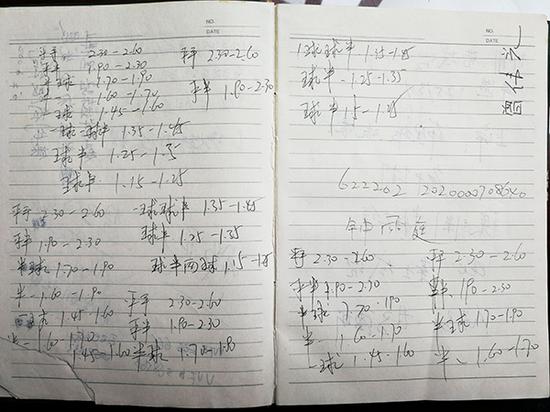 NO.
DATE
平手 2.30-2.60
平半 1.90-2.30
半球 1.70-1.90
半一 1.60-1.70
一球 1.45-1.60
一球-球半 1.35-1.45
球半 1.25-1.35
球半 1.15-1.25
平手 2.30-2.60
平半 1.90-2.30
平手 2.30-2.60
平半 1.90-2.30
半球 1.70-1.90
半一 1.60-1.90
一球 1.45-1.60
半一 1.60-1.70
1.45-1.60
一球球半 1.35-1.45
球半 1.25-1.35
球半两球 1.15-1.25
平手 2.30-2.60
平半 1.90-2.30
半球 1.70-1.90
NO.
DATE
1球球半 1.35-1.45
球半 1.25-1.35
球半 1.15-1.25
622202
雨庭
平手 2.30-2.60
平半 1.90-2.30
半球 1.70-1.90
半一 1.60-1.70
一球 1.45-1.60
平手 2.30-2.60
平半 1.90-2.30
半球 1.70-1.90
半一 1.60-1.70